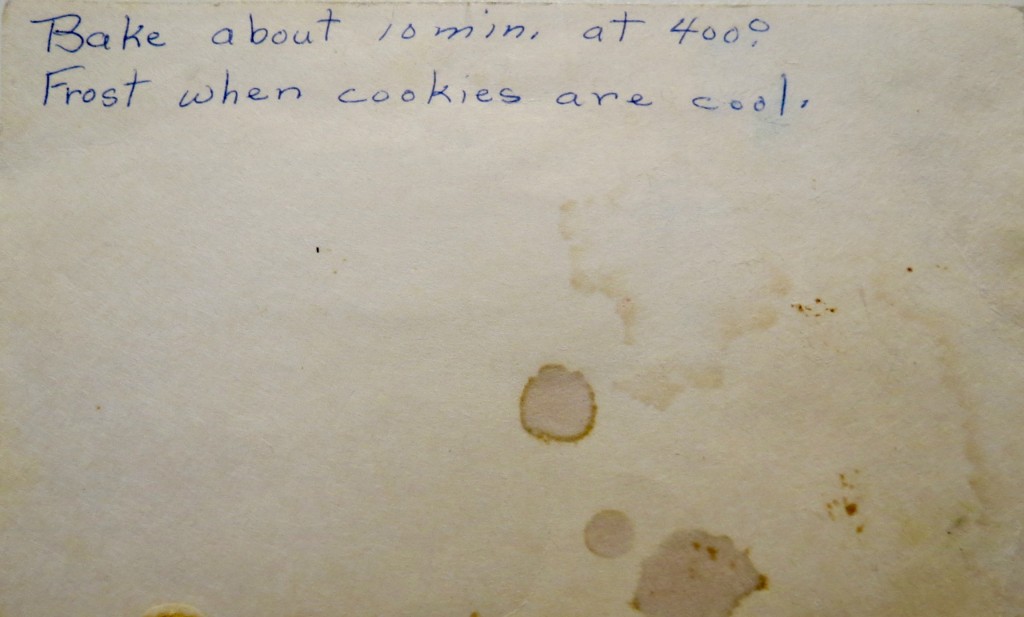 Bake about 10 min. at 400°.
Frost when cookies are cool.